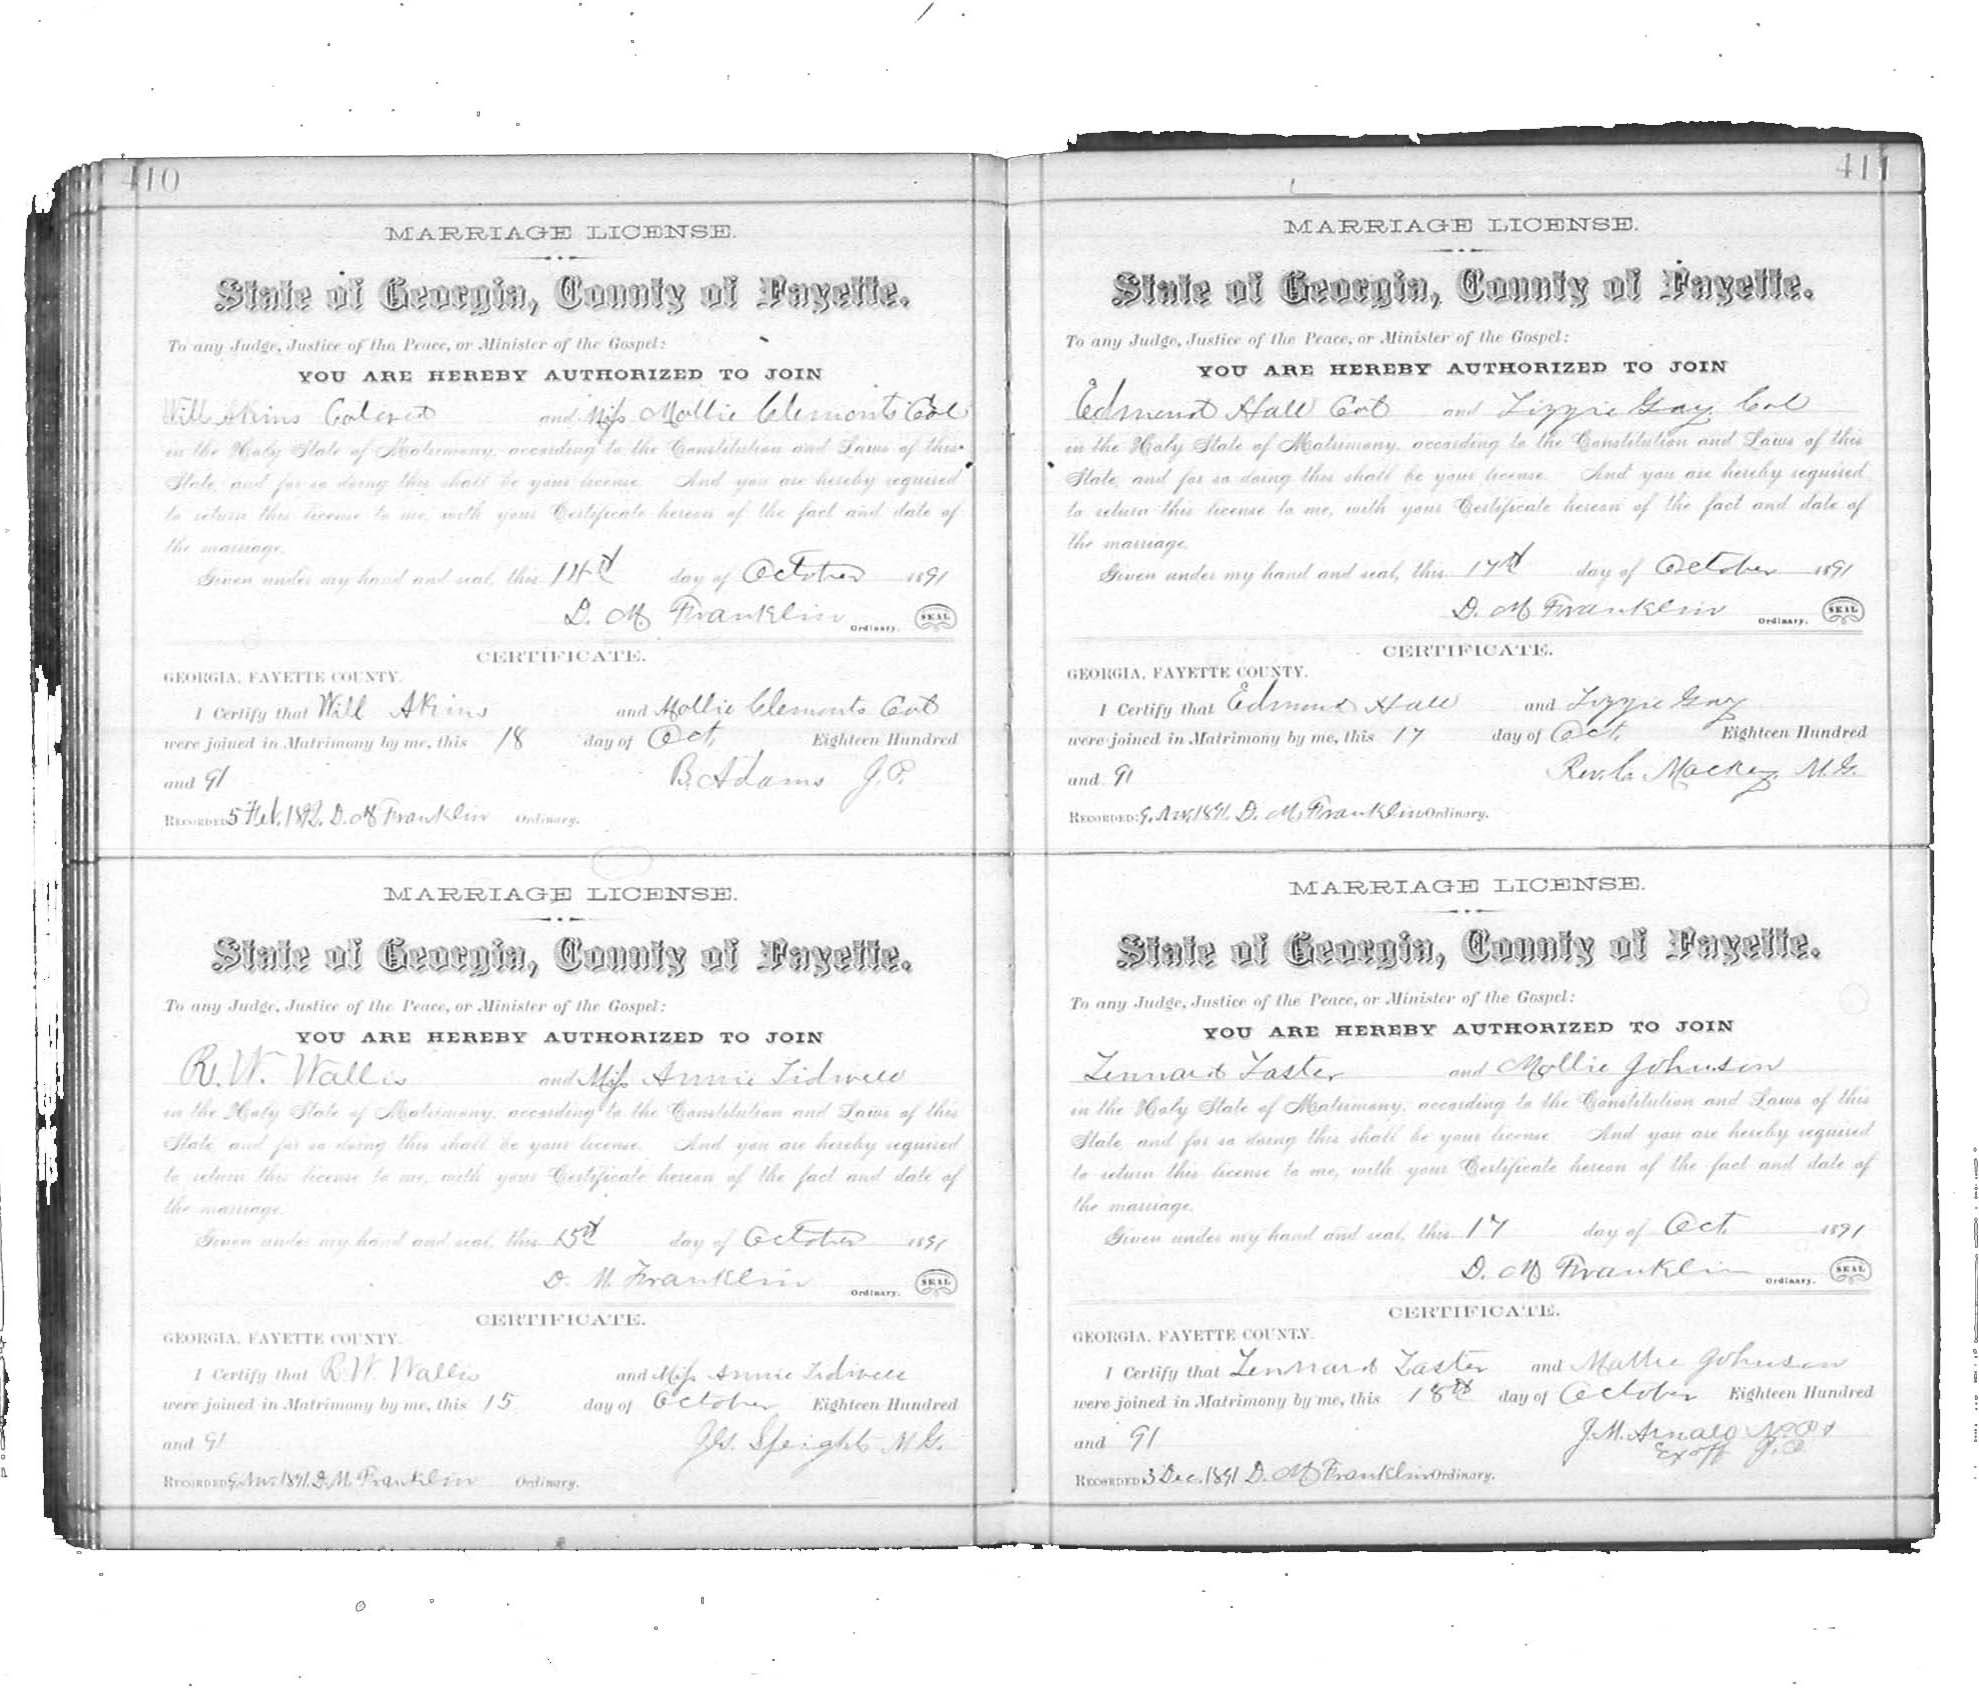 410
MARRIAGE LICENSE.
State of Georgia, County of Fayette.
To any Judge, Justice of the Peace, or Minister of the Gospel:
YOU ARE HEREBY AUTHORIZED TO JOIN
Will Akins Colored and Miss Mollie Clemonts Col
in the Holy State of Matrimony, according to the Constitution and Laws of this
State, and for so doing this shall be your license. And you are hereby required
to return this license to me, with your Certificate hereon of the fact and date of
the marriage.
Given under my hand and seal, this 14th day of October 1891
D. M Franklin Ordinary. SEAL
CERTIFICATE.
GEORGIA, FAYETTE COUNTY.
I Certify that Will Akins and Mollie Clemonts Col
were joined in Matrimony by me, this 18 day of Oct, Eighteen Hundred
and 91 B. Adams J.P.
RECORDED 5 Feb. 1892. D. M Franklin Ordinary.
MARRIAGE LICENSE.
State of Georgia, County of Fayette.
To any Judge, Justice of the Peace, or Minister of the Gospel:
YOU ARE HEREBY AUTHORIZED TO JOIN
R. W. Wallis and Miss Annie Tidwell
in the Holy State of Matrimony, according to the Constitution and Laws of this
State, and for so doing this shall be your license. And you are hereby required
to return this license to me, with your Certificate hereon of the fact and date of
the marriage.
Given under my hand and seal, this 15th day of October 1891
D. M. Franklin Ordinary. SEAL
CERTIFICATE.
GEORGIA, FAYETTE COUNTY.
I Certify that R. W. Wallis and Miss Annie Tidwell
were joined in Matrimony by me, this 15 day of October Eighteen Hundred
and 91 J.G. Speights M.G.
RECORDED 9. Nov. 1891. D. M. Franklin Ordinary.
411
MARRIAGE LICENSE.
State of Georgia, County of Fayette.
To any Judge, Justice of the Peace, or Minister of the Gospel:
YOU ARE HEREBY AUTHORIZED TO JOIN
Edmond Hall Col and Lizzie Gay Col
in the Holy State of Matrimony, according to the Constitution and Laws of this
State, and for so doing this shall be your license. And you are hereby required
to return this license to me, with your Certificate hereon of the fact and date of
the marriage.
Given under my hand and seal, this 17th day of October 1891
D. M Franklin Ordinary. SEAL
CERTIFICATE.
GEORGIA, FAYETTE COUNTY.
I Certify that Edmond Hall and Lizzie Gay
were joined in Matrimony by me, this 17 day of Oct. Eighteen Hundred
and 91 Rev. C. Mackey M.G.
RECORDED: 9. Nov. 1891. D. M. Franklin Ordinary.
MARRIAGE LICENSE.
State of Georgia, County of Fayette.
To any Judge, Justice of the Peace, or Minister of the Gospel:
YOU ARE HEREBY AUTHORIZED TO JOIN
Lennard Laster and Mollie Johnson
in the Holy State of Matrimony, according to the Constitution and Laws of this
State, and for so doing this shall be your license. And you are hereby required
to return this license to me, with your Certificate hereon of the fact and date of
the marriage.
Given under my hand and seal, this 17 day of Oct. 1891
D. M Franklin Ordinary. SEAL
CERTIFICATE.
GEORGIA, FAYETTE COUNTY.
I Certify that Lennard Laster and Mattie Johnson
were joined in Matrimony by me, this 18th day of October Eighteen Hundred
and 91 J. M. Arnall
Exoff J.P.
RECORDED 3 Dec. 1891 D. M Franklin Ordinary.